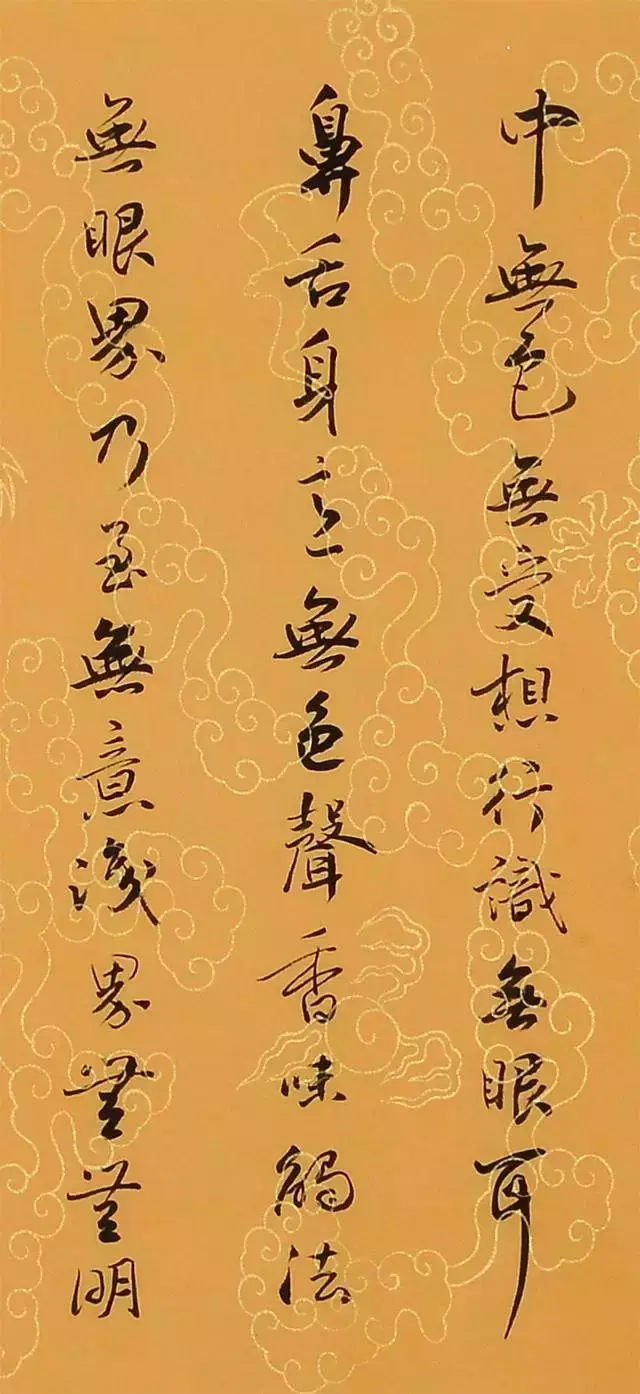 中無色無受想行識無眼耳
鼻舌身意無色聲香味觸法
無眼界乃至無意識界無無明